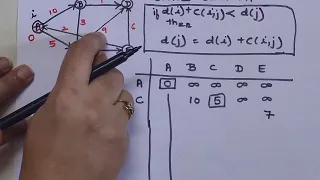 i 10 B 1 D
A 2 3 9 6
0 5
if d(i) + c(i,j) < d(j)
then
d(j) = d(i) + c(i,j)
A B C D E
A 0 ∞ ∞ ∞ ∞
C 10 5 ∞ ∞
7